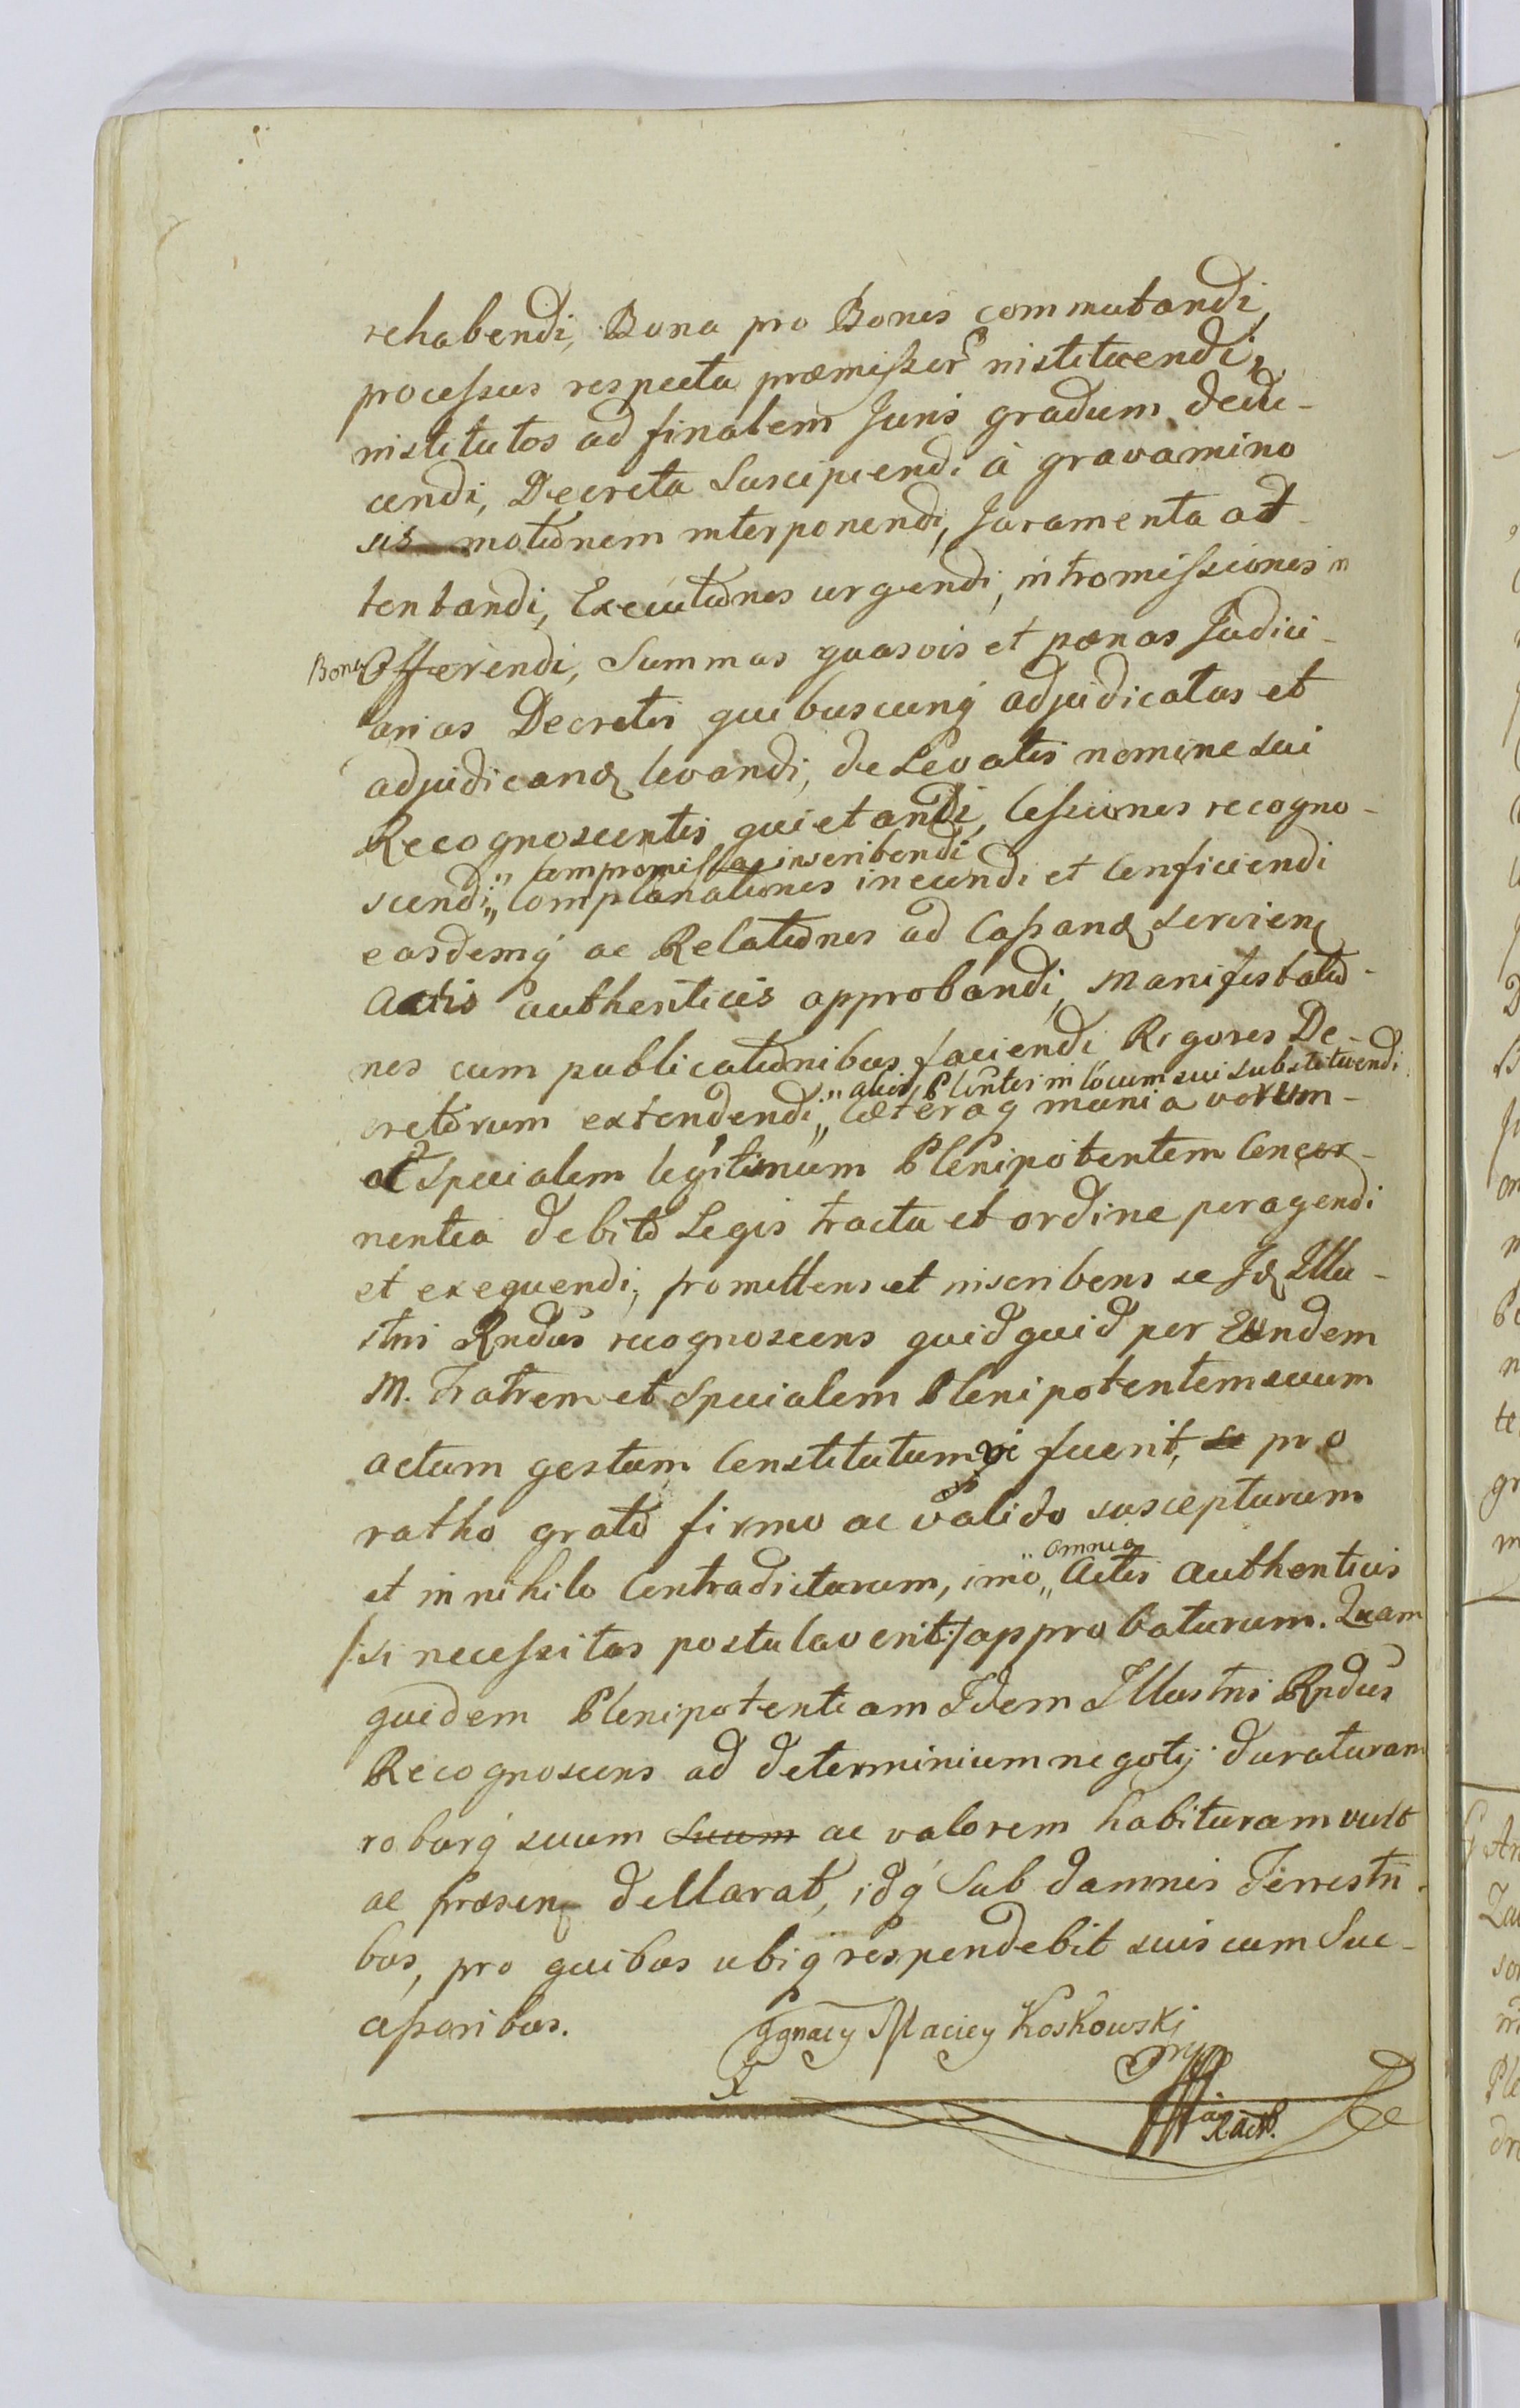 rehabendi, Bona pro Bonis commutandi,
processus respectu præmissor̃ instituendi,
institutos ad finalem Juris gradum dedu-
cendi, Decreta Suscipiendi à gravamino
sis motionem interponendi, Juramenta at-
tentandi, Executiones urgendi, intromissiones in
Bona Offerendi, Summas quasvis et pœnas Judici-
arias Decretis quibuscunq́ adjudicatas et
adjudicand levandi, de Levatis nomine sui
Recognoscentis quietandi, Cessiones recogno-
" Compromissa inscribendi
scendi „ Complanationes ineundi et Conficiendi
easdemq́ ac Relationes ad Cassand servien
Actis authenticis approbandi, Manifestatio-
nes cum publicationibus faciendi Rigores De-
" alios Plentes in locum sui substituendi
cretorum extendendi „ Cæteraq munia verum-
et Specialem legitimum Plenipotentem Concer-
nentia debito Legis tractu et ordine peragendi
et exequendi; promittens et inscribens se Id Illu-
stris Rndus recognoscens quidquid per Eundem
M. Fratrem et Specialem Plenipotentem suum
actum gestum Constitutumvè fuerit, se pro
ratho grato firmo ac valido suscepturum
" omnia
et in nihilo Contradicturum, imo „ Actis Authenticis
/:si necessitas postulaverit:/ approbaturum. Quam
quidem Plenipotentiam Idem Illustris Rndus
Recognoscens ad determinium negotij duraturam
roburq́ suum suum ac valorem habituram vult
ac præsen declarat, idq́ Sub damnis Terrestri-
bus, pro quibus ubiq́ respondebit suis cum Suc-
cessoribus.
Ignacy Maciey Koskowski